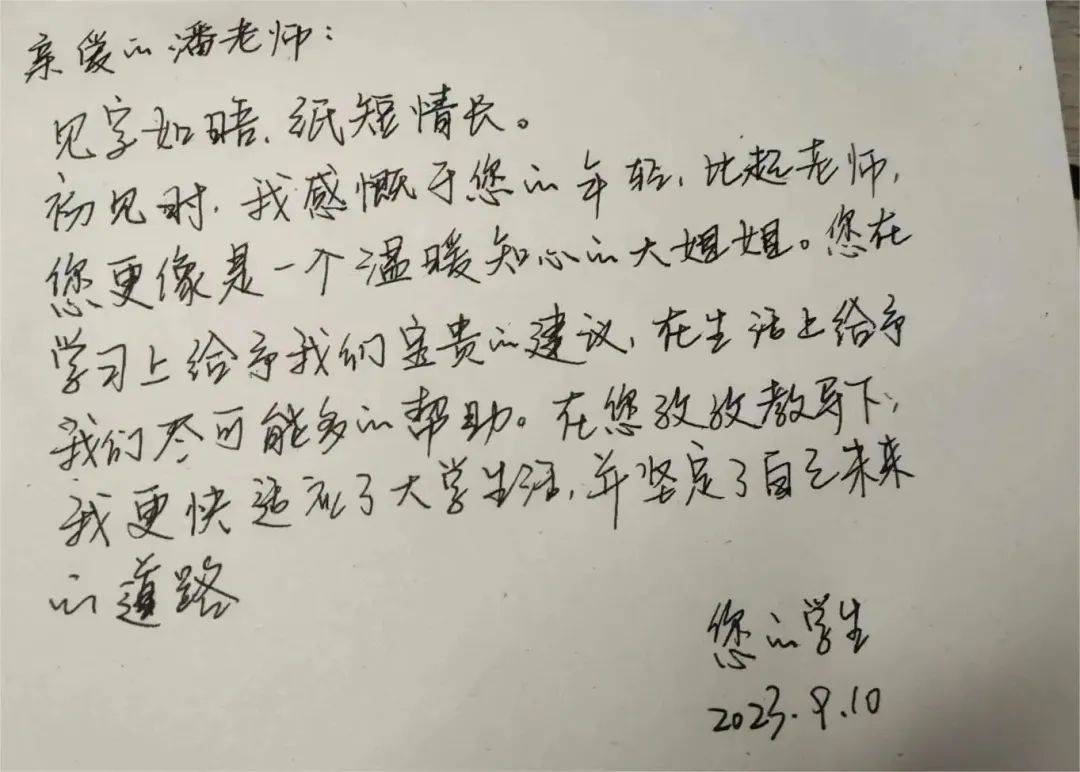 亲爱的潘老师：
见字如晤，纸短情长。
初见时，我感慨于您的年轻，比起老师，
您更像是一个温暖知心的大姐姐。您在
学习上给予我们宝贵的建议，在生活上给予
我们尽可能多的帮助。在您孜孜教导下，
我更快适应了大学生活，并坚定了自己未来
的道路
您的学生
2023.9.10